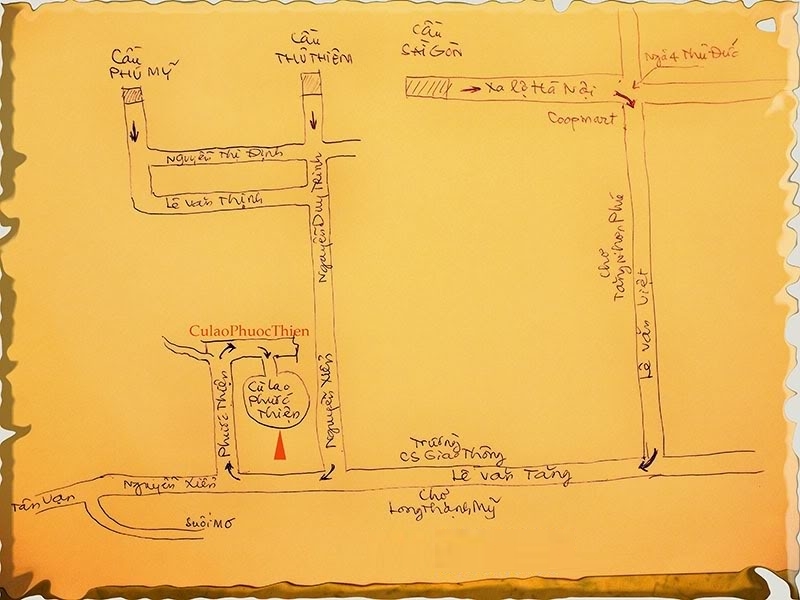 CẦU
PHÚ MỸ
CẦU
THỦ THIÊM
CẦU
SÀI GÒN
Ngã 4 Thủ Đức
Xa lộ Hà Nội
Coopmart
Nguyễn Thị Định
Lê Văn Thịnh
Nguyễn Duy Trinh
Chợ
Tăng Nhơn Phú
Lê Văn Việt
CulaoPhuocThien
Cù lao
Phước
Thiện
Phước Thiện
Nguyễn Xiển
Trường
CS Giao Thông
Lê Văn Tăng
Nguyễn Xiển
Tân Vạn
Chợ
Long Thạnh Mỹ
Suối Mơ